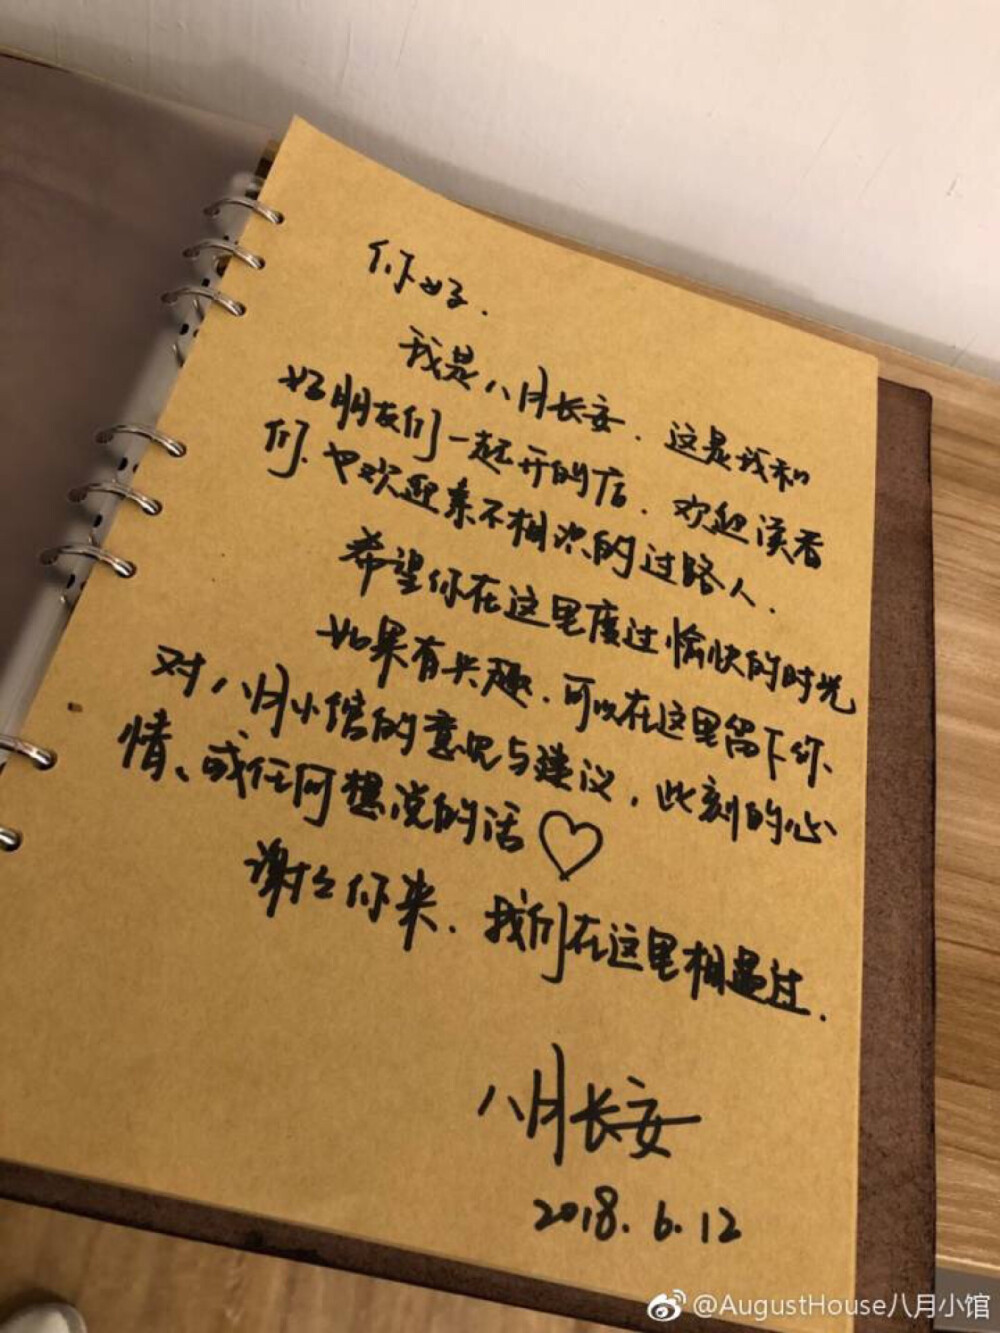 你好.
我是八月长安. 这是我和
好朋友们一起开的店. 欢迎读者
们. 也欢迎素不相识的过路人.
希望你在这里度过愉快的时光
如果有兴趣. 可以在这里留下你
对八月小馆的意见与建议, 此刻的心
情、或任何想说的话♡
谢谢你来. 我们在这里相遇过.
八月长安
2018.6.12
@AugustHouse八月小馆